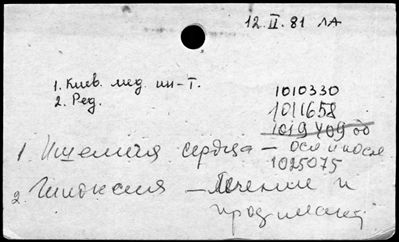 12.II.81 ЛА
1. Киев. мед. ин-т.
2. Ред.
1010330
1011658
1019409 об
1. Ишемия сердца — осл
1025075
2. Гипоксия — Лечение и